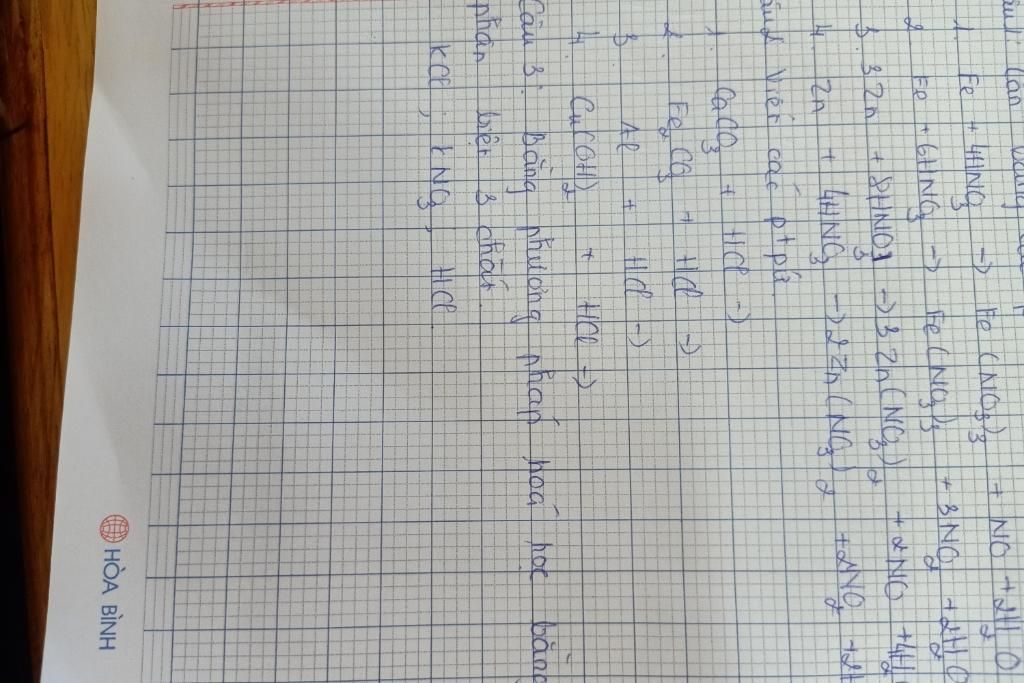 Câu 1: Cân bằng các p
1. Fe + 4HNO₃ → Fe(NO₃)₃ + NO + 2H₂O
2 Fe + 6HNO₃ → Fe(NO₃)₃ + 3NO₂ + 2H₂O
3. 3Zn + 8HNO₃ → 3Zn(NO₃)₂ + 2NO + 4H₂
4. Zn + 4HNO₃ → 2Zn(NO₃)₂ + 2NO₂ + 2H
Câu 2 Viết các ptpứ
1. CaCO₃ + HCl →
2. Fe₂CO₃ + HCl →
3 Al + HCl →
4. Cu(OH)₂ + HCl →
Câu 3: Bằng phương pháp hoá học bằng
phân biệt 3 chất.
KCl, KNO₃, HCl.
HÒA BÌNH